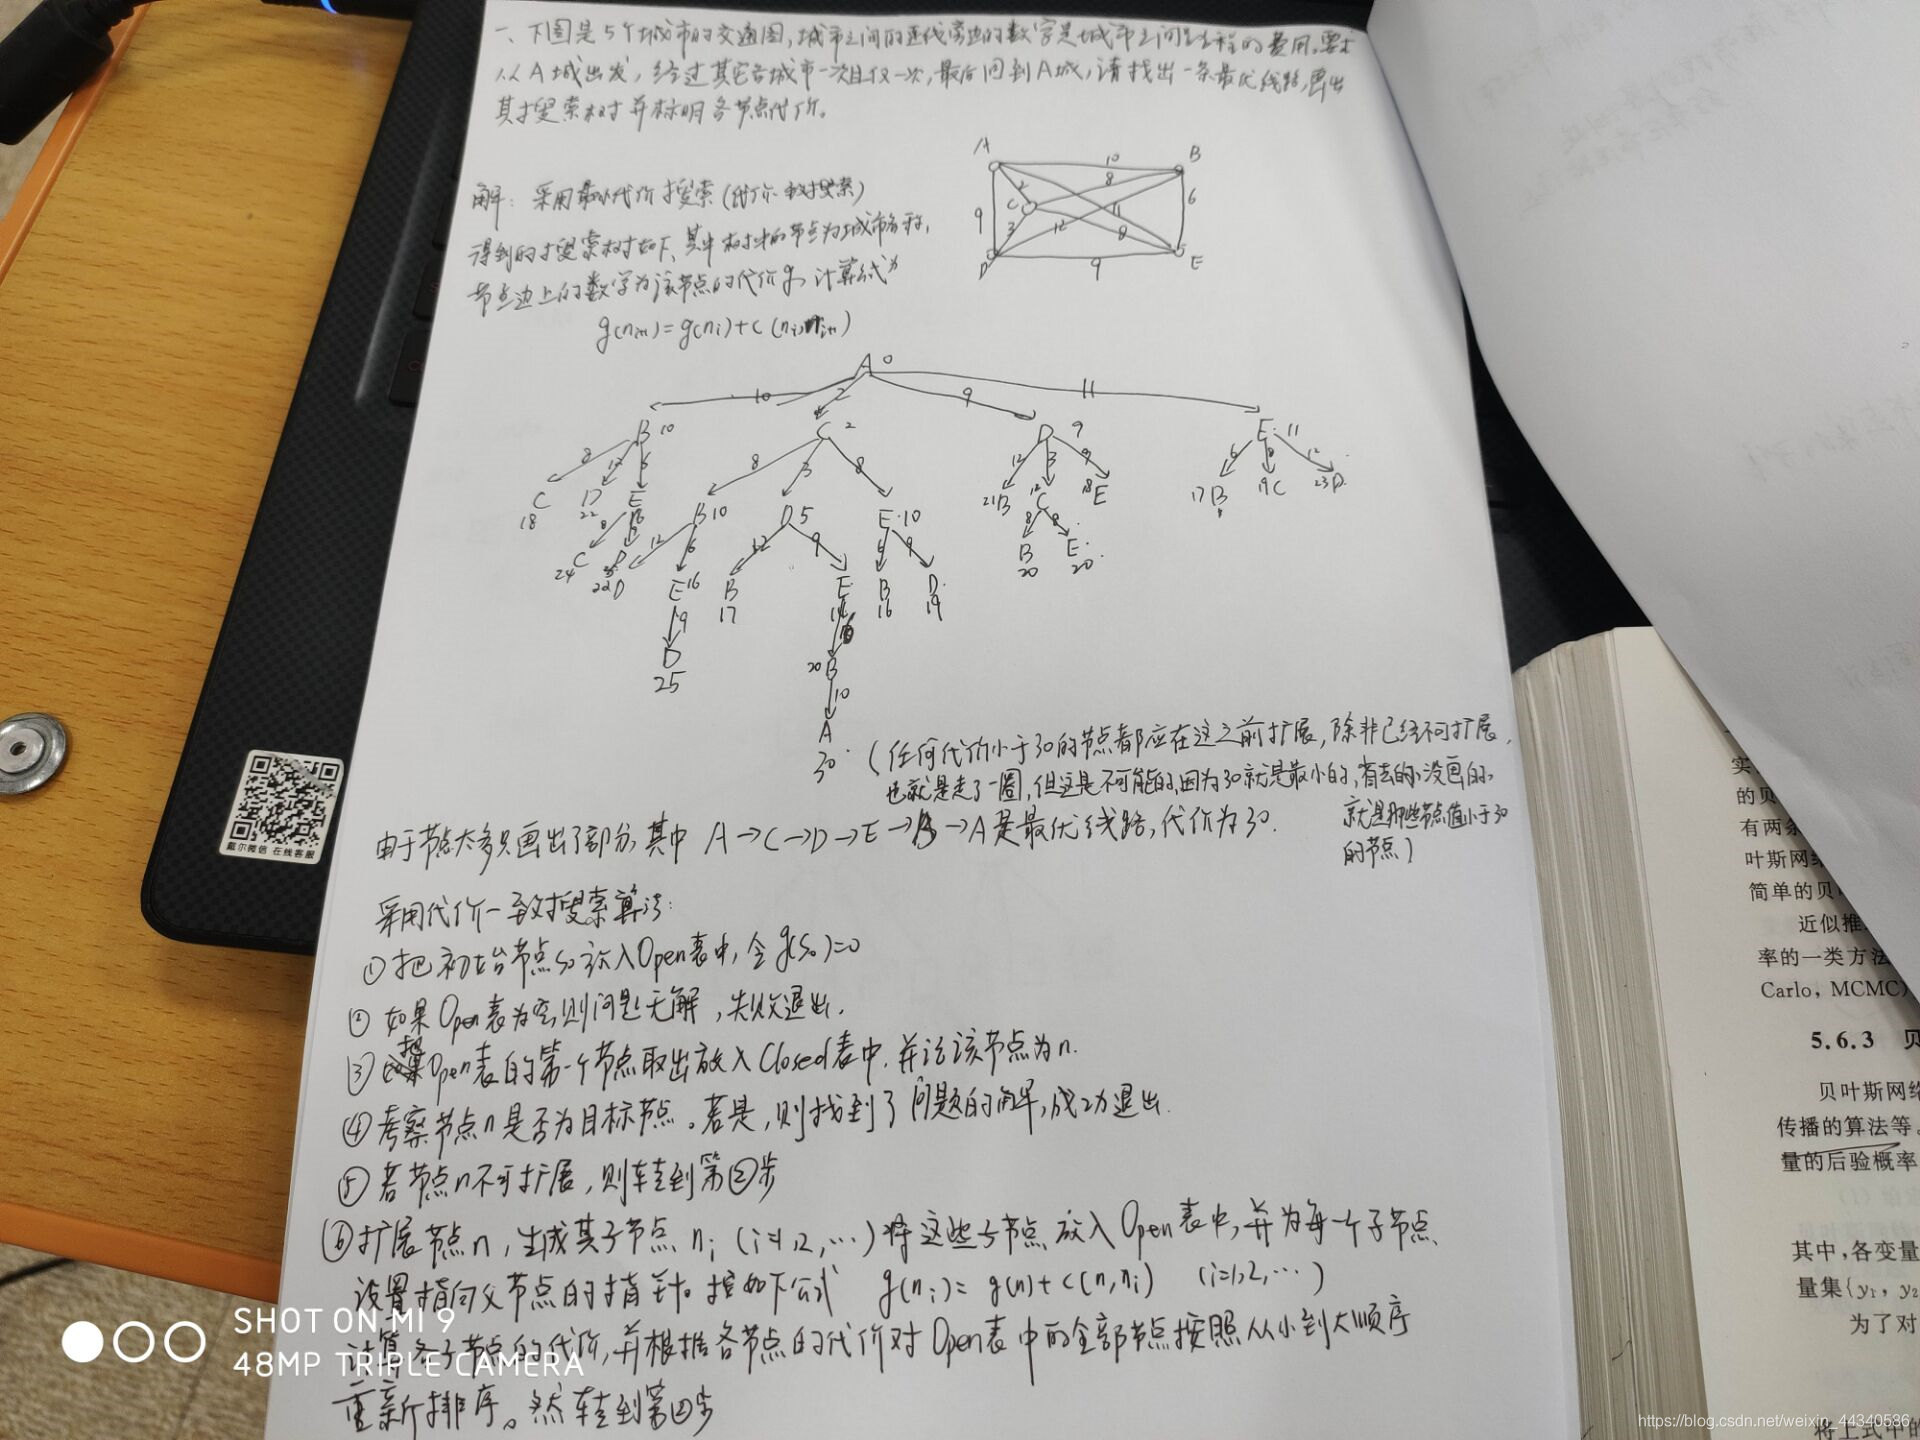 一、下图是5个城市的交通图,城市之间的连线旁边的数字是城市之间路程的费用,要求
从A城出发,经过其它各城市一次且仅一次,最后回到A城,请找出一条最优线路,画出
其搜索树并标明各节点代价。
解:采用最小代价搜索(代价一致搜索)
得到的搜索树如下、其中树中的节点为城市名称,
节点边上的数字为该节点的代价g,计算公式为
g(ni+1)=g(ni)+c(ni,ni+1)
A
B
C
D
E
10
8
2
6
9
3
12
11
8
9
A 0
10 2 9 11
B 10 C 2 D 9 E 11
8 12 6 8 3 8 12 3 9 6 8 12
C 18 D 22 E 16 B 10 D 5 E 10 21 B 12 C 18 E 17 B 19 C 23 D
8 9 12 6 12 9 6 9 8 8
C 24 D 25 22 D E 16 B 17 E 14 B 16 D 19 B 20 E 20
9
D 25
20 B
10
A
30
(任何代价小于30的节点都应在这之前扩展,除非已经不可扩展,
也就是走了一圈,但这是不可能的,因为30就是最小的,省去的没画的
就是那些节点值小于30
的节点)
由于节点太多只画出了部分,其中 A→C→D→E→B→A是最优线路,代价为30.
采用代价一致搜索算法:
①把初始节点S0放入Open表中,令g(S0)=0
②如果Open表为空,则问题无解,失败退出.
③把Open表的第一个节点取出放入Closed表中.并记该节点为n.
④考察节点n是否为目标节点。若是,则找到了问题的解,成功退出.
⑤若节点n不可扩展,则转到第②步
⑥扩展节点n,生成其子节点ni(i=1,2,…)将这些子节点放入Open表中,并为每一个子节点
设置指向父节点的指针。按如下公式 g(ni)=g(n)+c(n,ni) (i=1,2,…)
计算各子节点的代价,并根据各节点的代价对Open表中的全部节点按照从小到大顺序
重新排序。然转到第②步
戴尔微信 在线客服
SHOT ON MI 9
48MP TRIPLE CAMERA
实
的贝
有两条
叶斯网络
简单的贝
近似推
率的一类方法
Carlo,MCMC)
5.6.3 贝
贝叶斯网络
传播的算法等。
量的后验概率
其中,各变量
量集{y1,y2
为了对
将上式中的
https://blog.csdn.net/weixin_44340586